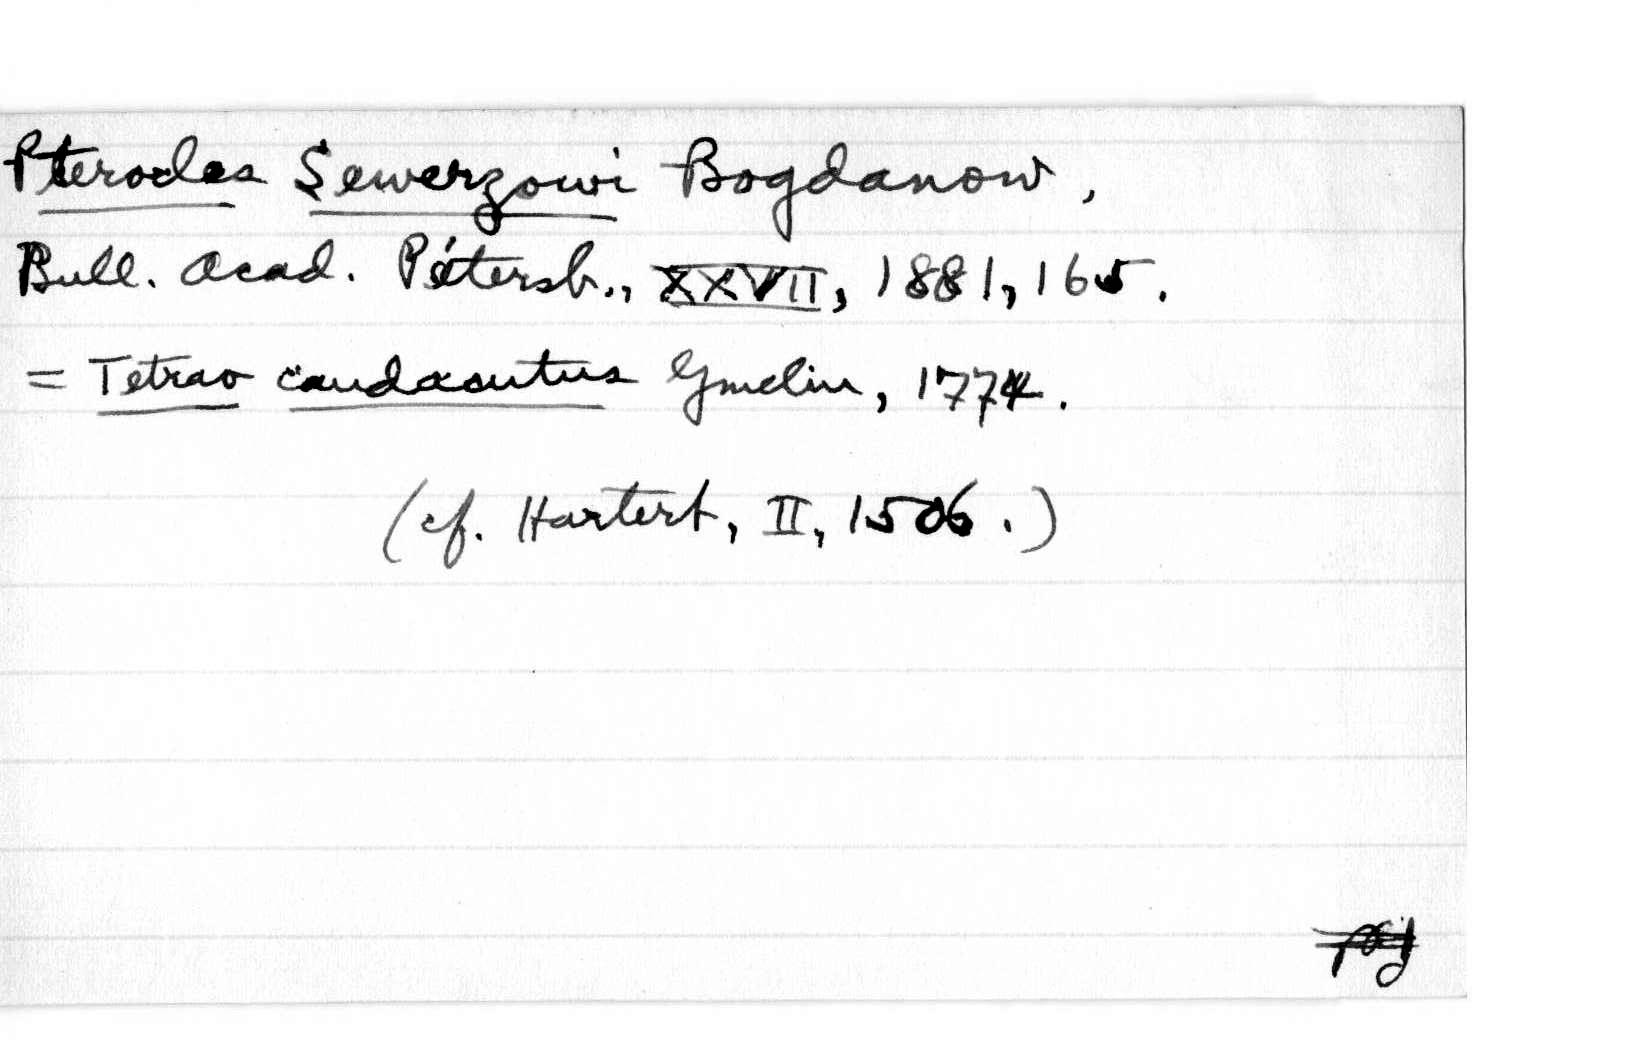 Pterocles Sewerzowi Bogdanow,
Bull. Acad. Pétersb., XXVII, 1881, 165.
= Tetrao caudacutus Gmelin, 1774.
(cf. Hartert, II, 1506.)